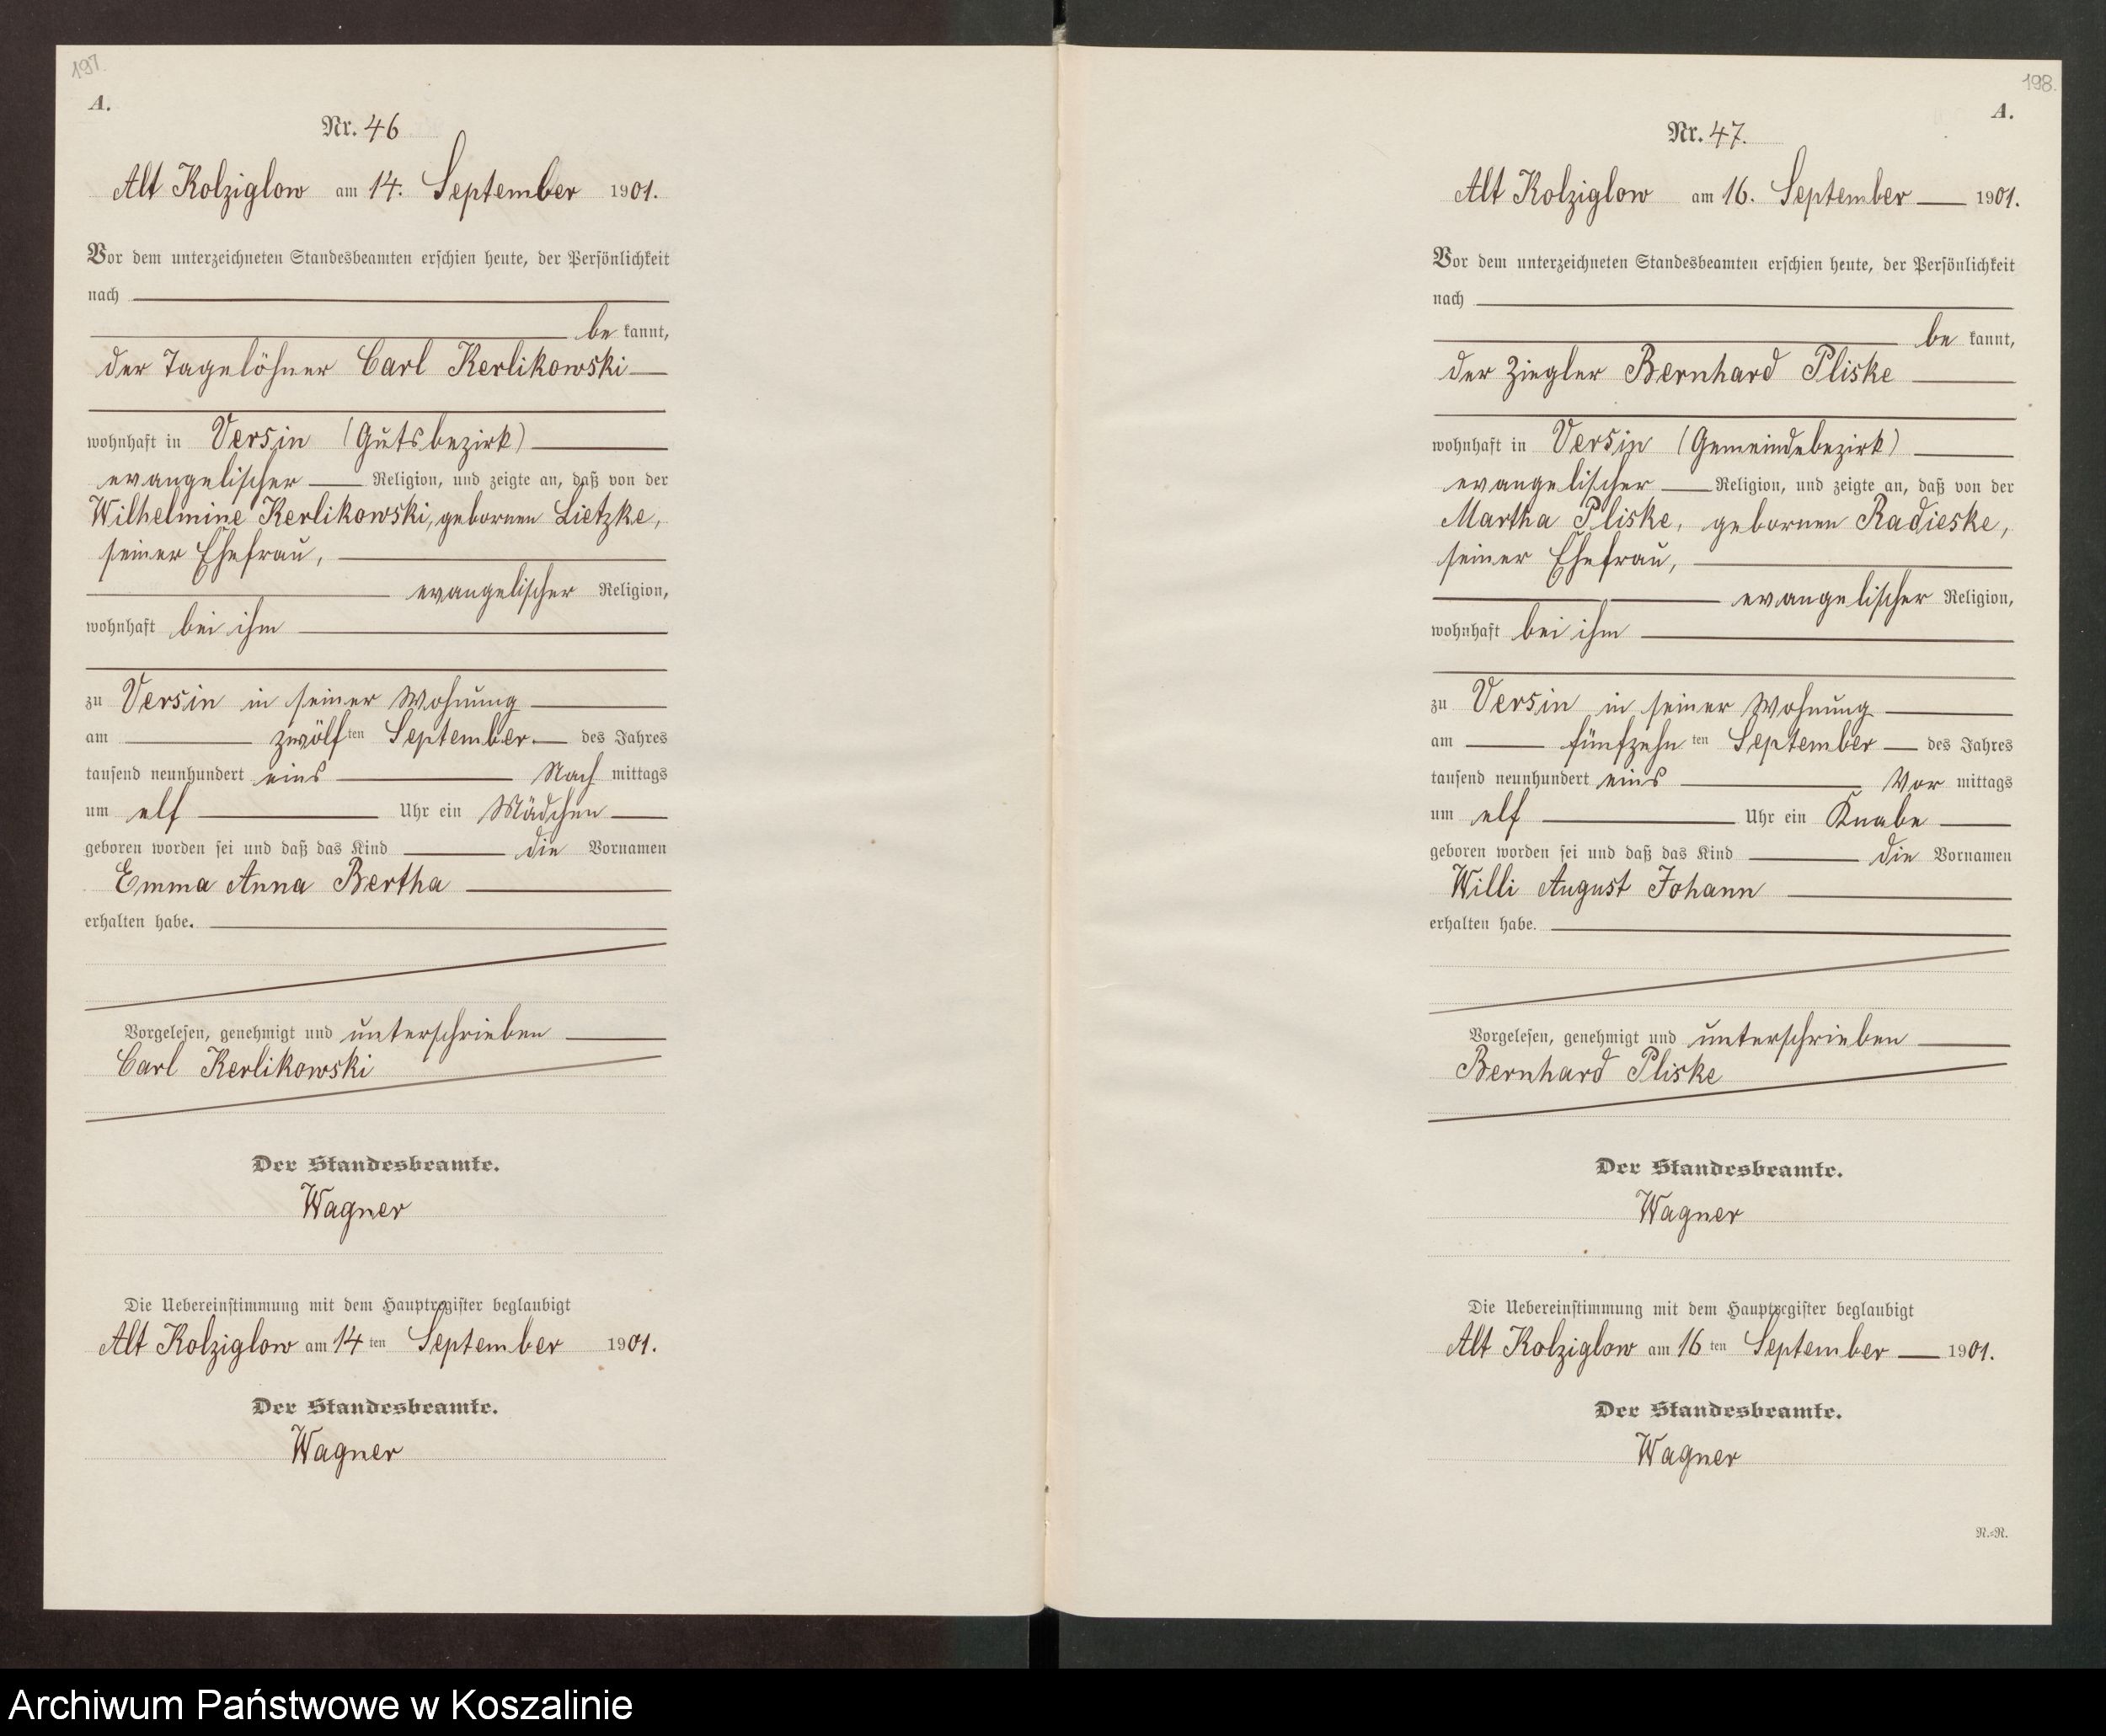 197.
A.
Nr. 46
Alt Kolziglow am 14. September 1901.
Vor dem unterzeichneten Standesbeamten erschien heute, der Persönlichkeit
nach
be kannt,
der Tagelöhner Carl Kerlikowski
wohnhaft in Versin (Gutsbezirk)
evangelischer Religion, und zeigte an, daß von der
Wilhelmine Kerlikowski, gebornen Lietzke,
seiner Ehefrau,
evangelischer Religion,
wohnhaft bei ihm
zu Versin in seiner Wohnung
am zwölf ten September des Jahres
tausend neunhundert eins Nach mittags
um elf Uhr ein Mädchen
geboren worden sei und daß das Kind die Vornamen
Emma Anna Bertha
erhalten habe.
Vorgelesen, genehmigt und unterschrieben
Carl Kerlikowski
Der Standesbeamte.
Wagner
Die Uebereinstimmung mit dem Hauptregister beglaubigt
Alt Kolziglow am 14 ten September 1901.
Der Standesbeamte.
Wagner
198.
A.
Nr. 47.
Alt Kolziglow am 16. September 1901.
Vor dem unterzeichneten Standesbeamten erschien heute, der Persönlichkeit
nach
be kannt,
der Ziegler Bernhard Pliske
wohnhaft in Versin (Gemeindebezirk)
evangelischer Religion, und zeigte an, daß von der
Martha Pliske, gebornen Radieske,
seiner Ehefrau,
evangelischer Religion,
wohnhaft bei ihm
zu Versin in seiner Wohnung
am fünfzehn ten September des Jahres
tausend neunhundert eins Vor mittags
um elf Uhr ein Knabe
geboren worden sei und daß das Kind die Vornamen
Willi August Johann
erhalten habe.
Vorgelesen, genehmigt und unterschrieben
Bernhard Pliske
Der Standesbeamte.
Wagner
Die Uebereinstimmung mit dem Hauptregister beglaubigt
Alt Kolziglow am 16 ten September 1901.
Der Standesbeamte.
Wagner
N.-N.
Archiwum Państwowe w Koszalinie